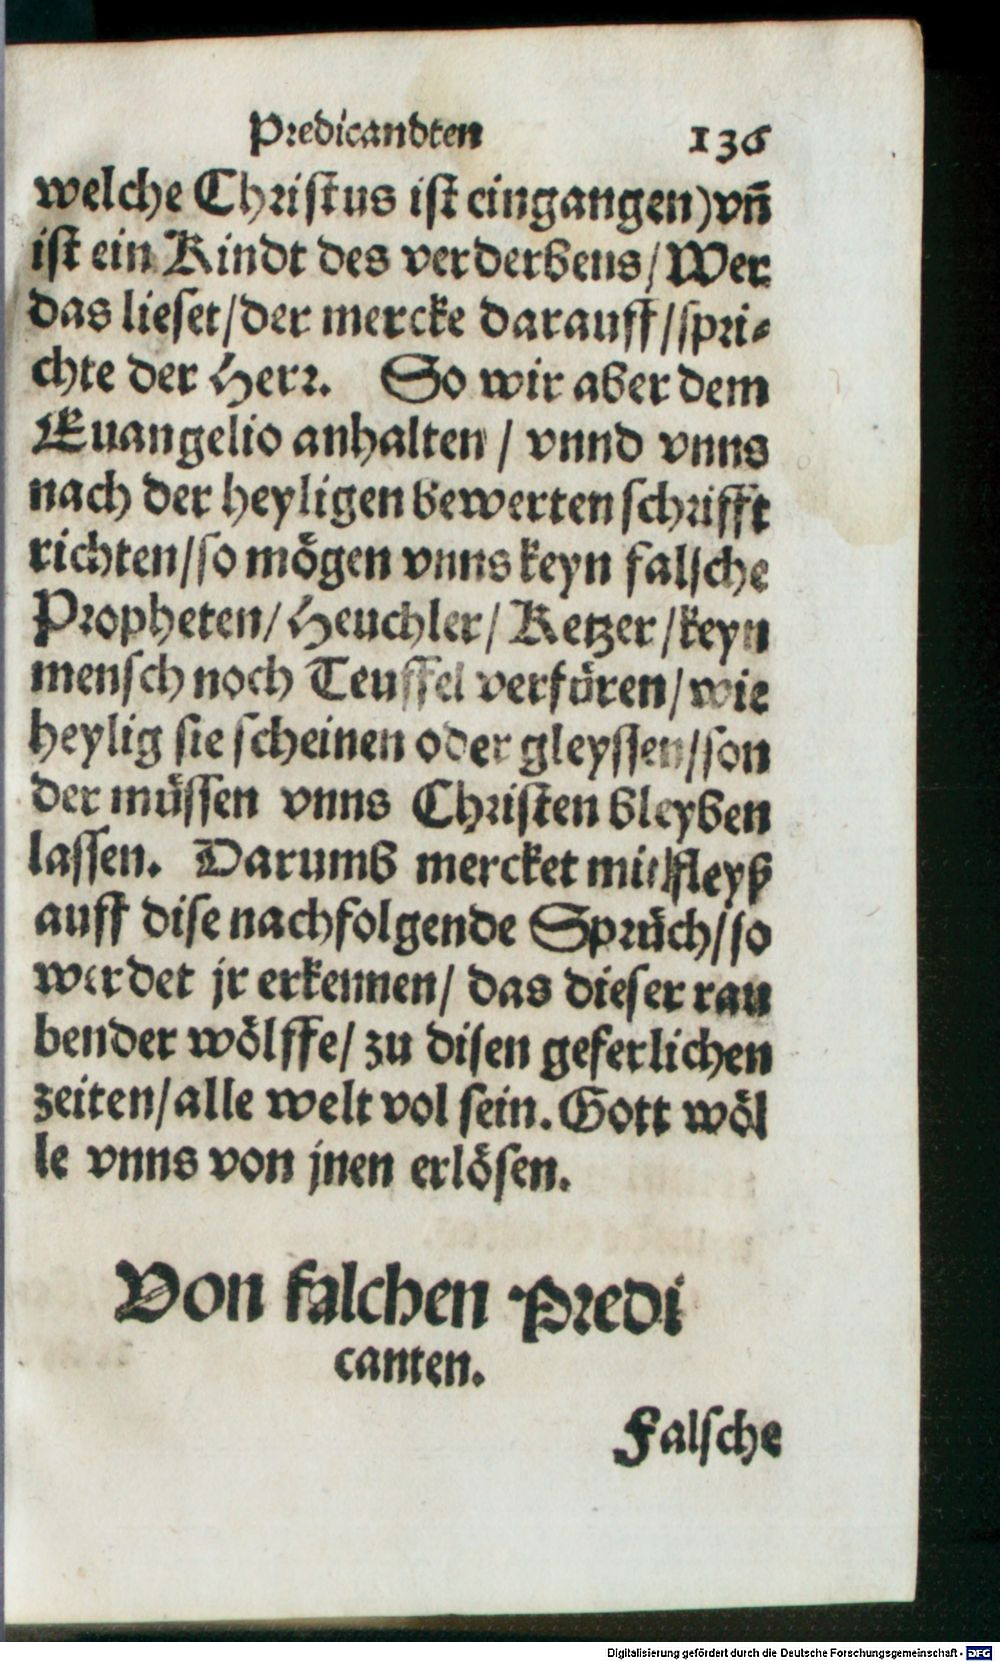 Predicandten 136
welche Christus ist eingangen) vñ
ist ein Kindt des verderbens / Wer
das lieset / der mercke darauff / spri⸗
chte der Herr. So wir aber dem
Euangelio anhalten / vnnd vnns
nach der heyligen bewerten schrifft
richten / so mögen vnns keyn falsche
Propheten / Heuchler / Ketzer / keyn
mensch noch Teuffel verfüren / wie
heylig sie scheinen oder gleyssen / son
der müssen vnns Christen bleyben
lassen. Darumb mercket mit fleyß
auff dise nachfolgende Sprüch / so
werdet jr erkennen / das dieser rau
bender wölffe / zu disen geferlichen
zeiten / alle welt vol sein. Gott wöl
le vnns von jnen erlösen.
Von falchen Predi
canten.
Falsche
Digitalisierung gefördert durch die Deutsche Forschungsgemeinschaft - DFG